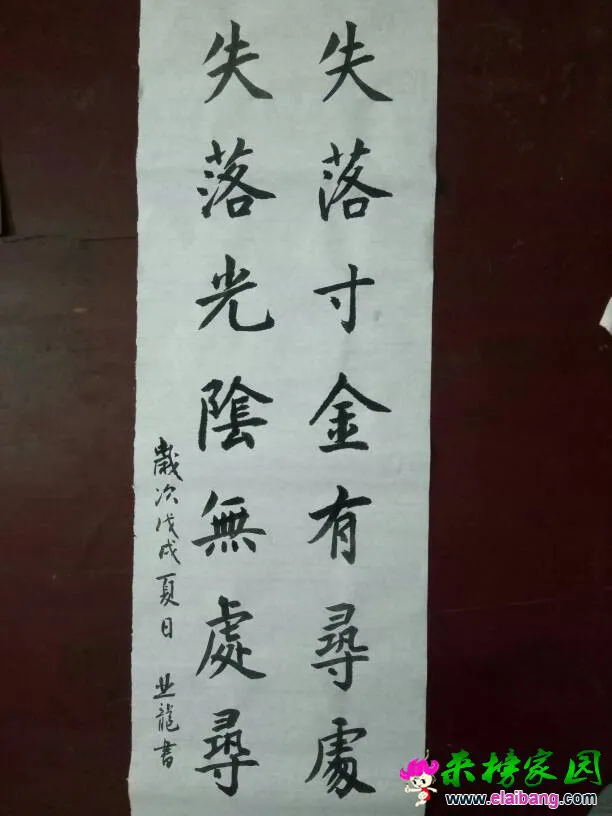 失落寸金有尋處
失落光陰無處尋
歲次戊戌夏日 业龍書
来榜家园
www.elaibang.com